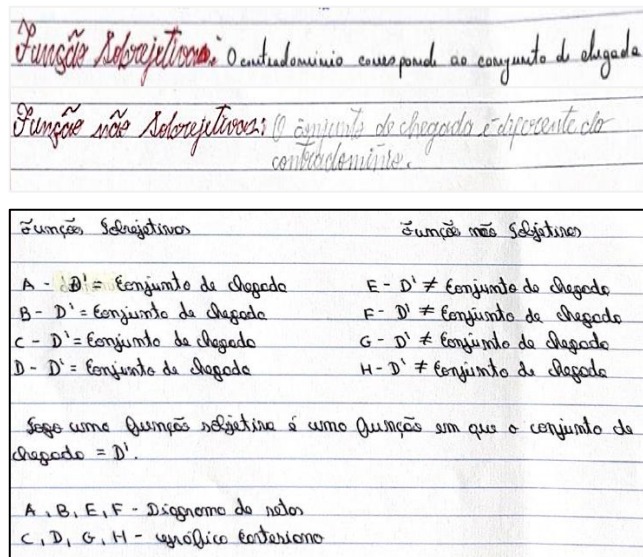 Função Sobrejetivas: O contradominio corresponde ao conjunto de chegada
Função não Sobrejetivas: O conjunto de chegada é diferente do
contradominio.
Função Sobrejetivas Função não Sobjetivas
A - D' = Conjunto de chegada E - D' ≠ Conjunto de chegada
B - D' = Conjunto de chegada F - D' ≠ Conjunto de chegada
C - D' = Conjunto de chegada G - D' ≠ Conjunto de chegada
D - D' = Conjunto de chegada H - D' ≠ Conjunto de chegada
Logo uma função sobjetiva é uma função em que o conjunto de
chegada = D'.
A, B, E, F - Diagrama de setas
C, D, G, H - gráfico cartesiano